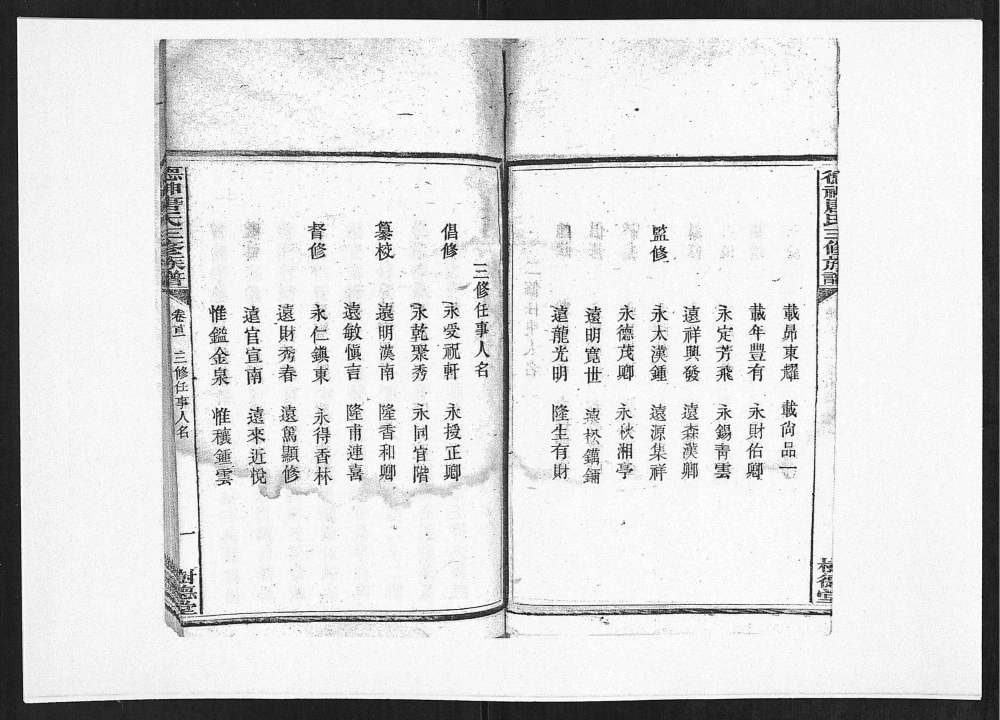 載昴東耀 載尙品一
載年豐有 永財佑卿
永定芳飛 永錫靑雲
遠祥興發 遠森漢卿
監修 永太漢鍾 遠源集祥
永德茂卿 永秋湘亭
遠明寬世
遠龍光明 隆生有財
三修任事人名
倡修 永愛祝軒 永授正卿
永乾聚秀 永同官階
纂校 遠明漢南 隆香和卿
遠敏愼吉 隆甫連喜
督修 永仁鎭東 永得香林
遠財秀春 遠篤顯修
遠官宣南 遠來近悅
惟鑑金泉 惟穰鍾雲
唐氏三修族譜
卷首 三修任事人名
一
樹德堂